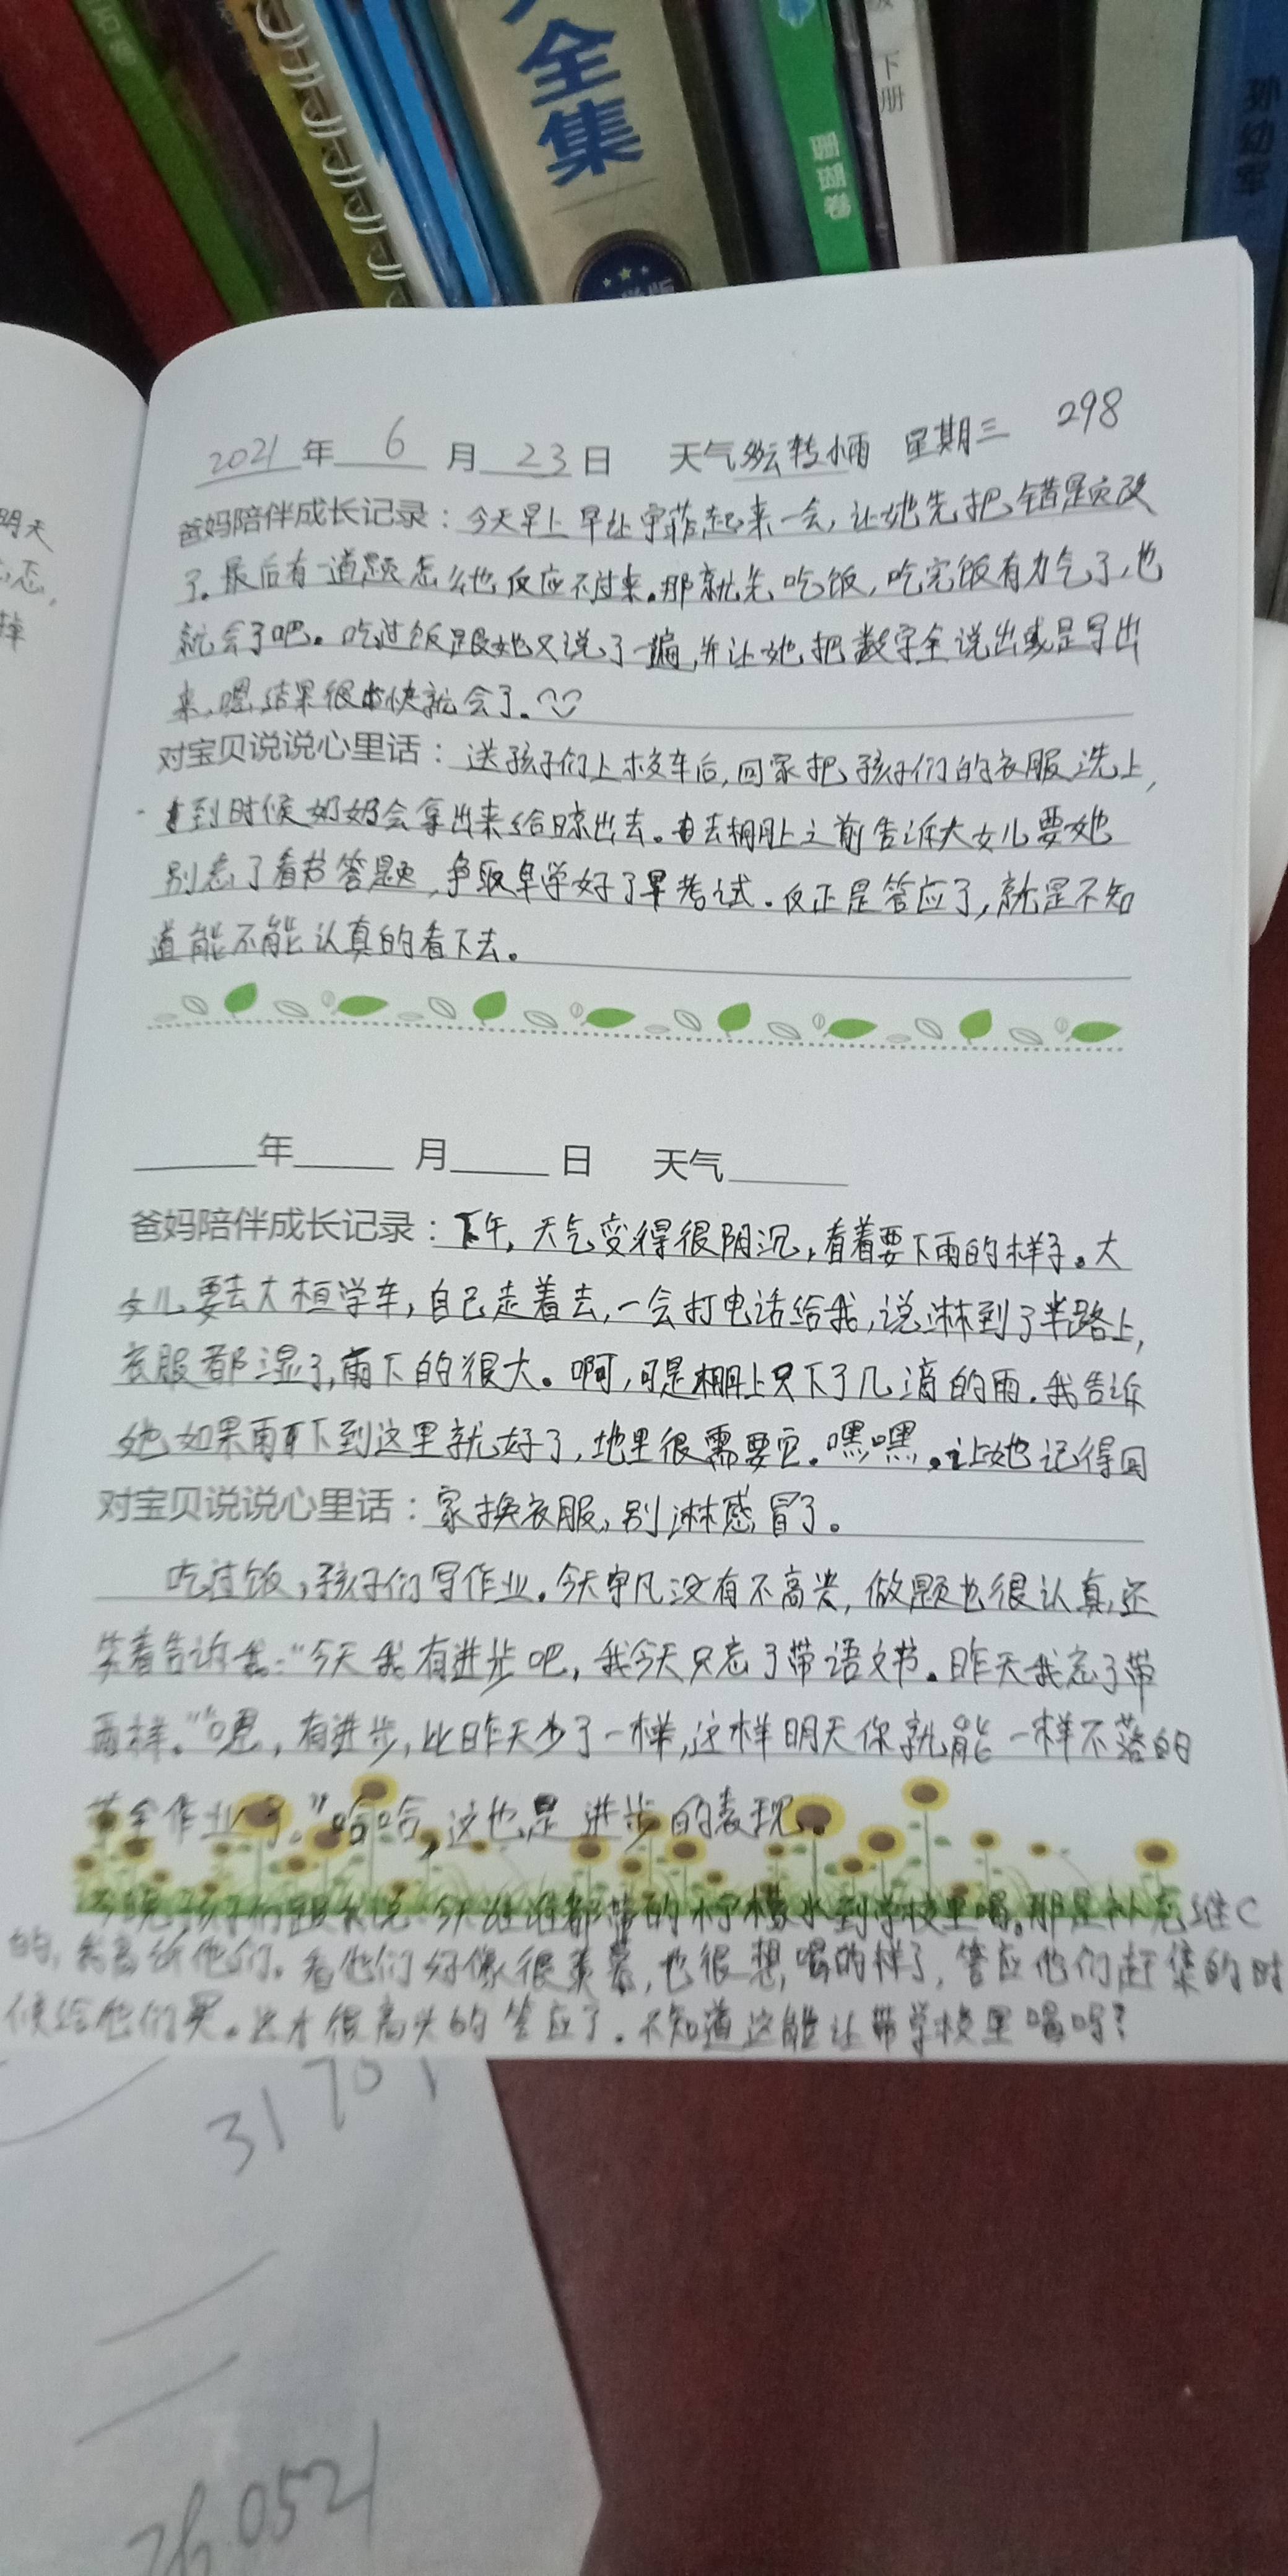 全集
珊瑚卷
下册
孙幼军
明天
2021年 6 月 23日 天气多云转小雨 星期三 298
爸妈陪伴成长记录：今天早上早让宇菲起来一会，让她先把错题改
了。最后有一道题怎么也反应不过来。那就先吃饭，吃完饭有力气了，也
就会了吧。吃过饭跟她又说了一遍，并让她把数字全说出或是写出
来，嗯，结果很快就会了。
对宝贝说说心里话：送孩子们上校车后，回家把孩子们的衣服洗上，
到时候奶奶会拿出来给晾出去。去棚上之前告诉大女儿要她
别忘了看书答题，争取早学好了早考试。反正是答应了，就是不知
道能不能认真的看下去。
年 月 日 天气
爸妈陪伴成长记录：下午，天气变得很阴沉，看着要下雨的样子。大
女儿要去大桓学车，自己走着去，一会打电话给我，说淋到了半路上，
衣服都湿了，雨下的很大。啊，可是棚上只下了几滴的雨。我告诉
她如果雨下到这里就好了，地里很需要它。嘿嘿。让她记得回
对宝贝说说心里话：家换衣服，别淋感冒了。
吃过饭，孩子们写作业。今天宇凡没有不高兴，做题也很认真，还
笑着告诉我：“今天我有进步吧，我今天只忘了带语文书。昨天我忘了带
两样。”“嗯，有进步，比昨天少了一样，这样明天你就能一样不落的
全作业了。”哈哈，这也是进步的表现。
孩子们跟我说今天谁谁都带的柠檬水到学校里喝。那是补充维C
的，我告诉他们。看他们好像很羡慕，也很想喝的样子，答应他们赶集的时
候给他们买。这才很高兴的答应了。不知道这能让带学校里喝吗？
31701
260521